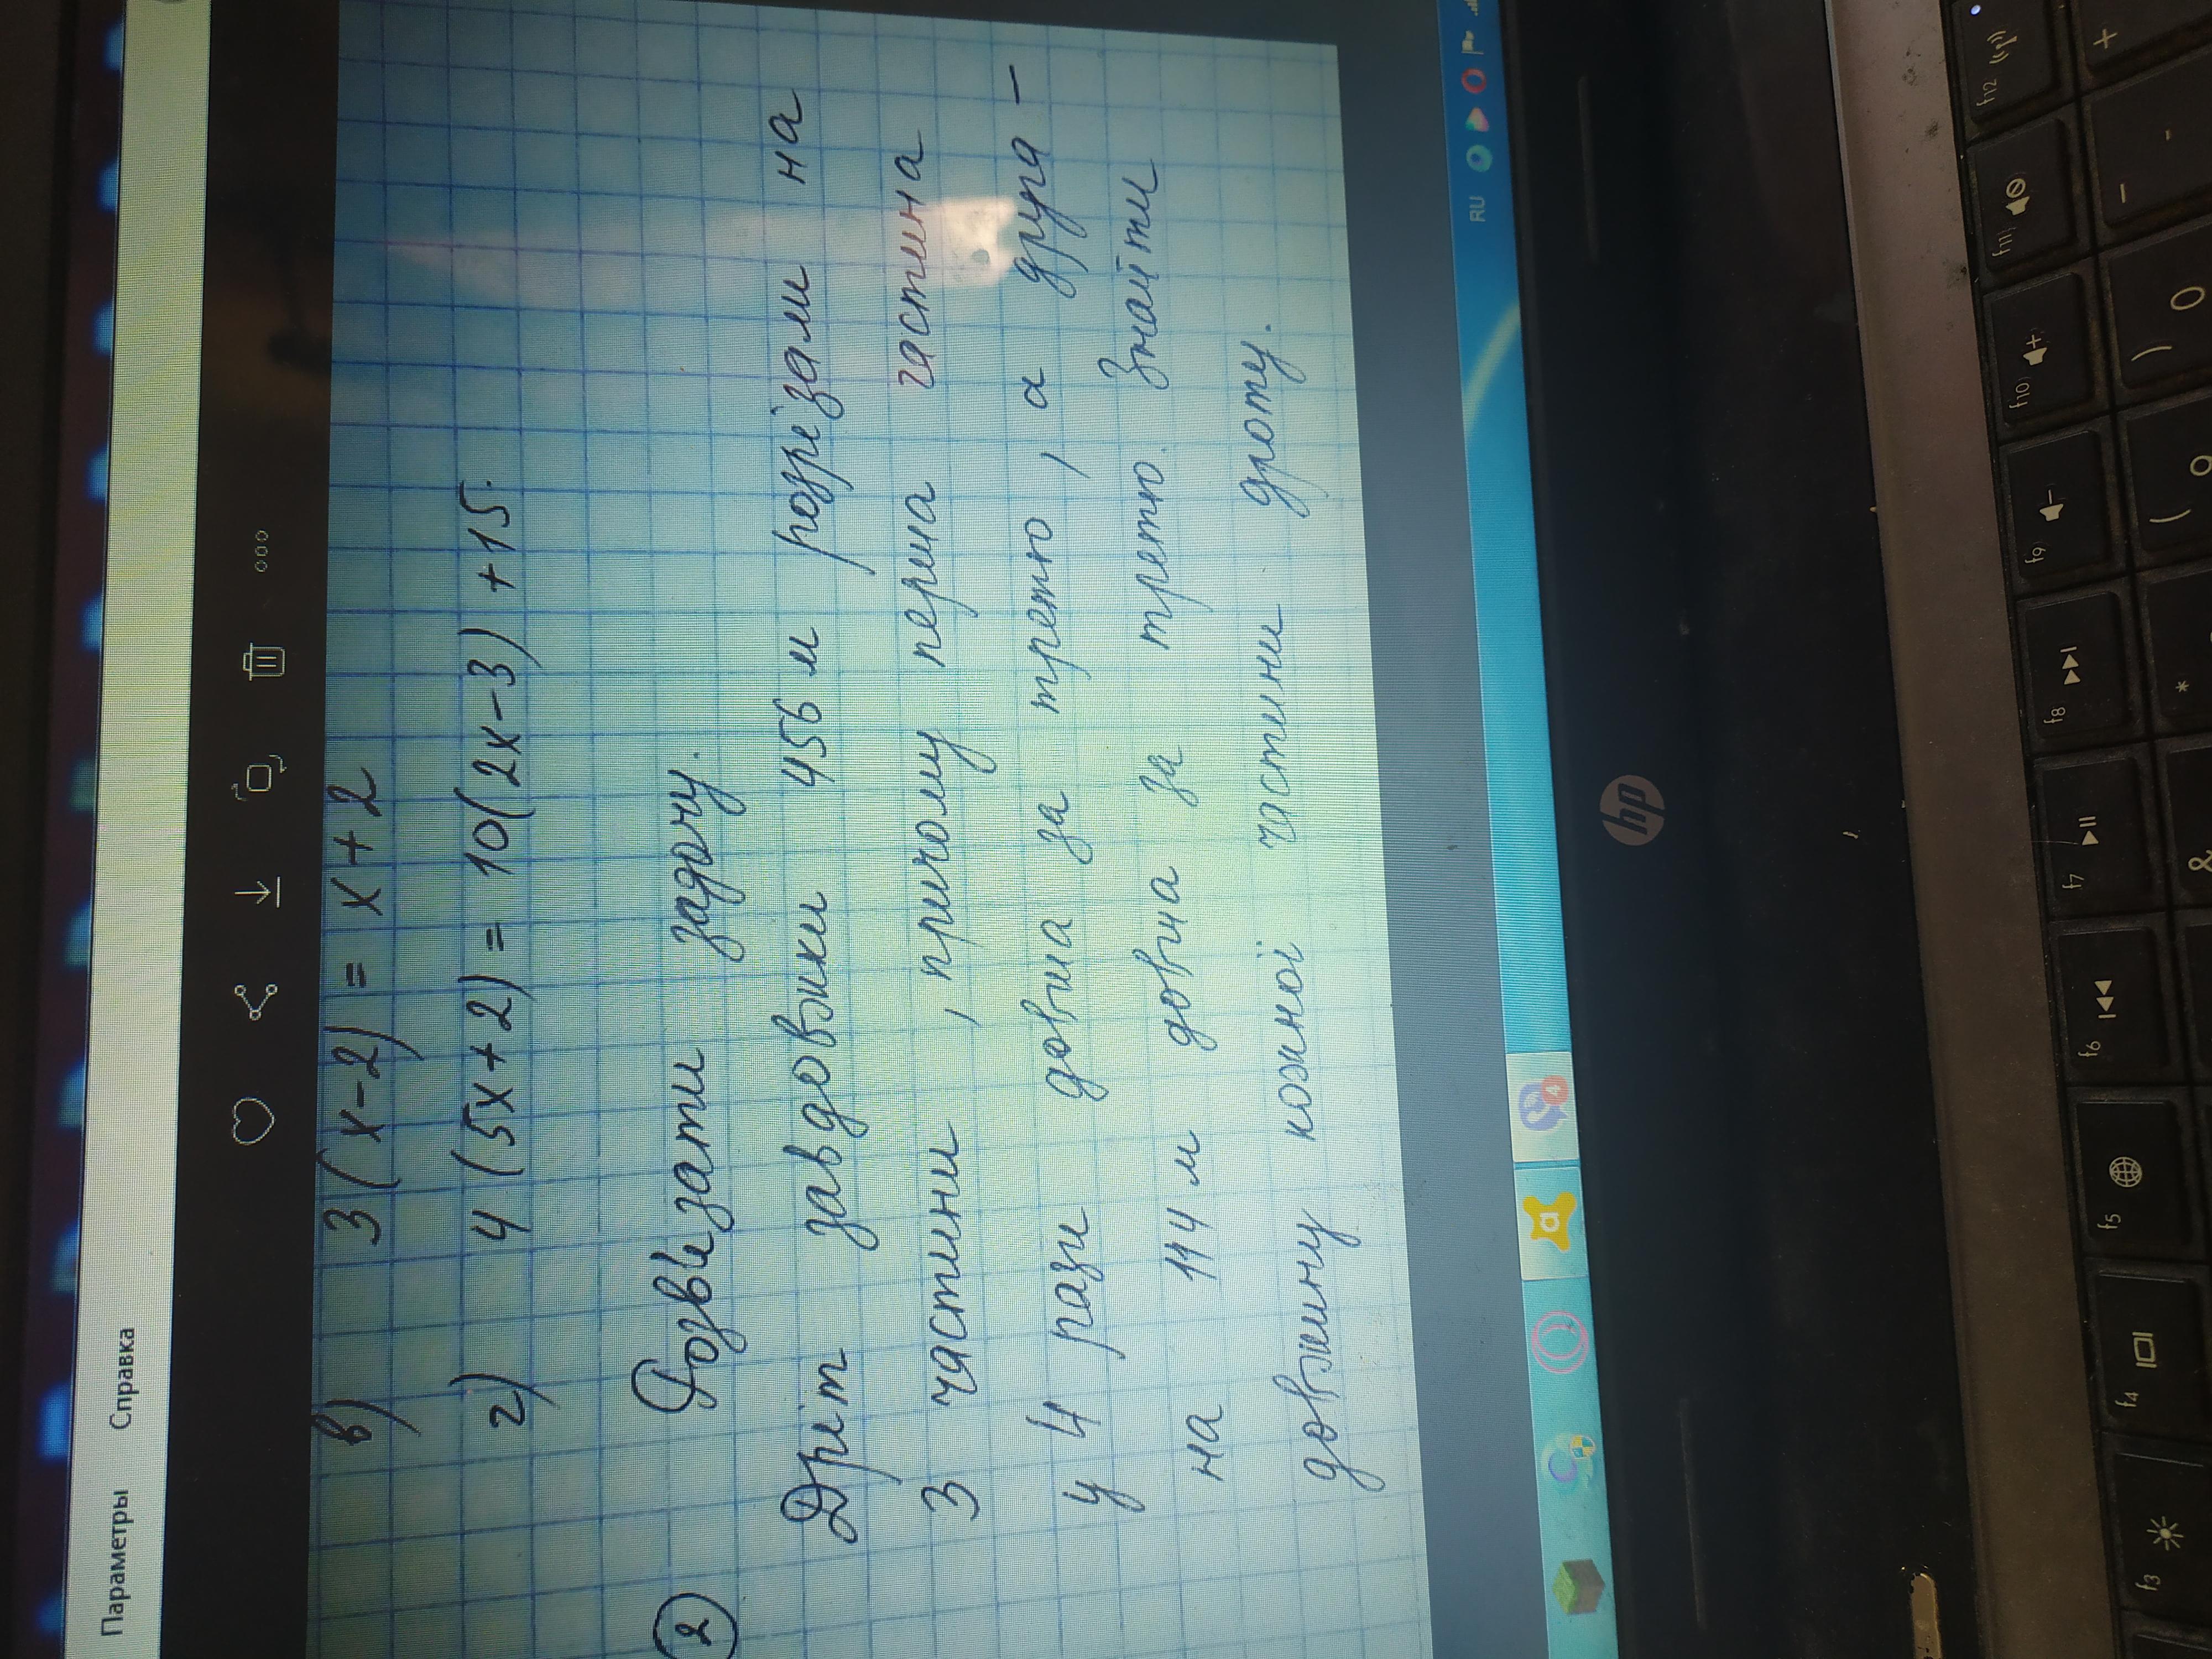 Параметры Справка
в) 3(x-2) = x+2
г) 4(5x+2) = 10(2x-3)+15.
2 Розв'язати задачу.
Дріт завдовжки 456 м розрізали на
3 частини, причому перша частина
у 4 рази довша за третю, а друга -
на 114 м довша за третю. Знайти
довжину кожної частини дроту.
RU
4
hp
f3 f4 f5 f6 f7 f8 f9 f10 f11 f12
& * ( ) - +
0